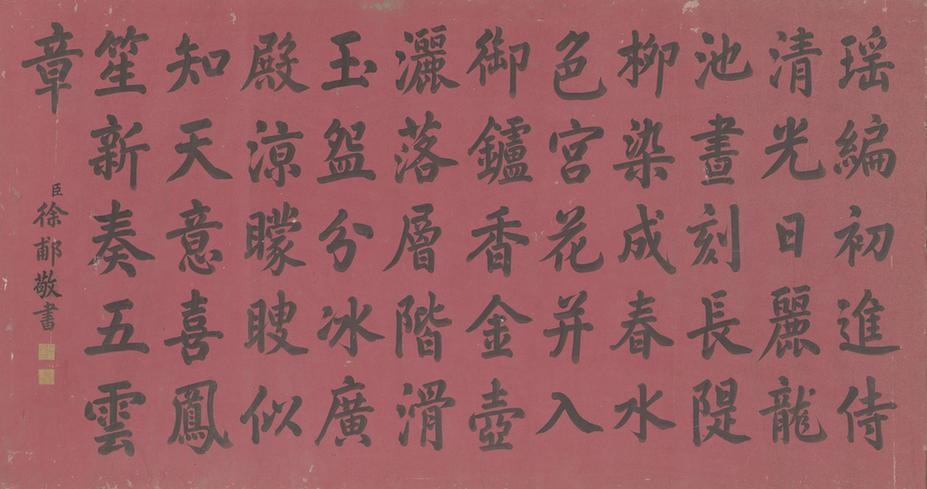 瑶編初進侍
清光日麗龍
池晝刻長隄
柳染成春水
色宮花并入
御鑪香金壺
灑落層階滑
玉盌分冰廣
殿涼矇瞍似
知天意喜鳳
笙新奏五雲
章
臣徐郙敬書